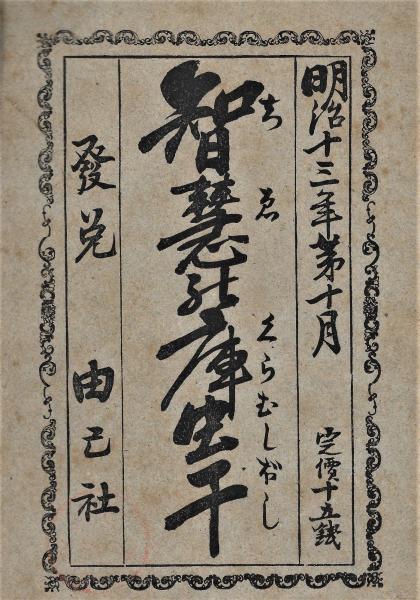 明治十三年第十月 定價十五錢
智慧能庫虫干
ちゑ くらむしぼし
發兌 由己社